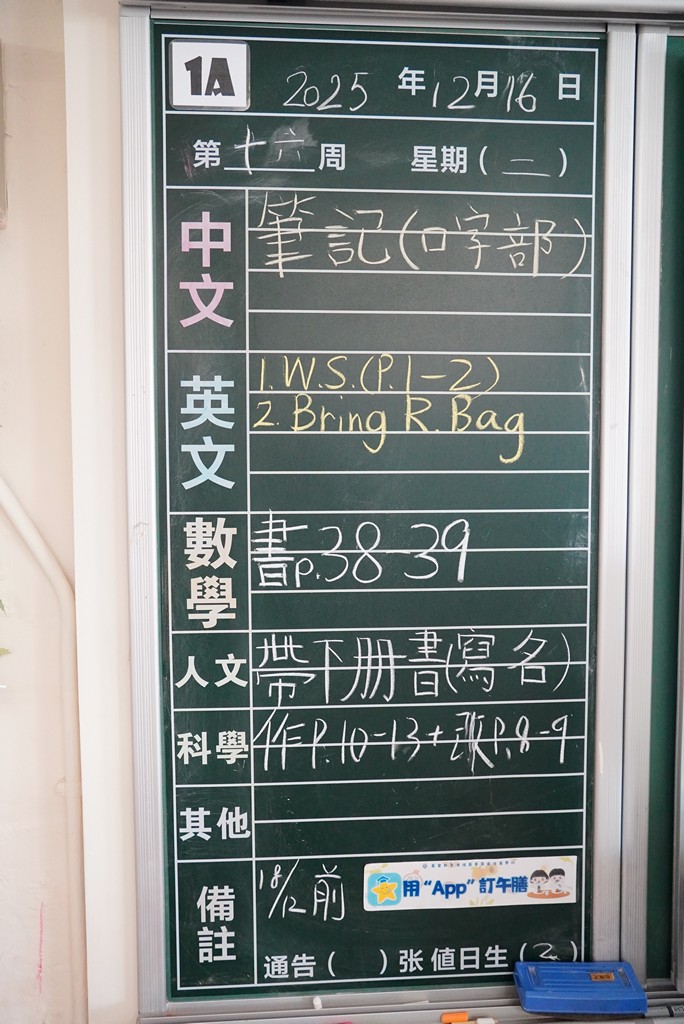 1A
2025 年 12 月 16 日
第 十六 周 星期 ( 二 )
中文
筆記(口字部)
英文
1. W.S. (P.1-2)
2. Bring R. Bag
數學
書p.38-39
人文
帶下册書(寫名)
科學
作P.10-13 + 改P.8-9
其他
備註
18/12前
用 “App” 訂午膳
通告 ( ) 张 值日生 ( )